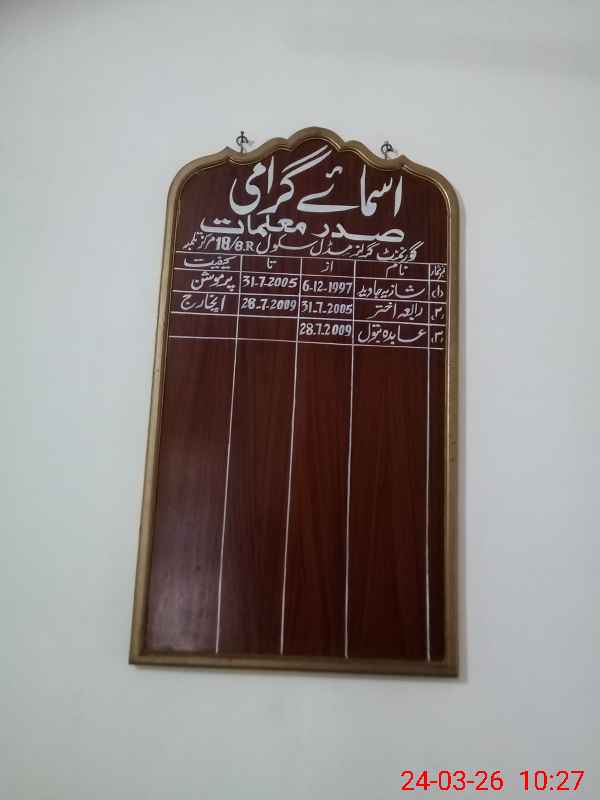 اسمائے گرامی
صدر معلمات
گورنمنٹ گرلز مڈل سکول 18/8.R مرکز تلمبہ
نمبرشمار نام از تا کیفیت
۱۔ شازیہ جاوید 6-12-1997 31-7-2005 پروموشن
۲۔ رابعہ اختر 31.7.2005 28.7.2009 انچارج
۳۔ عابدہ بتول 28.7.2009
24-03-26 10:27